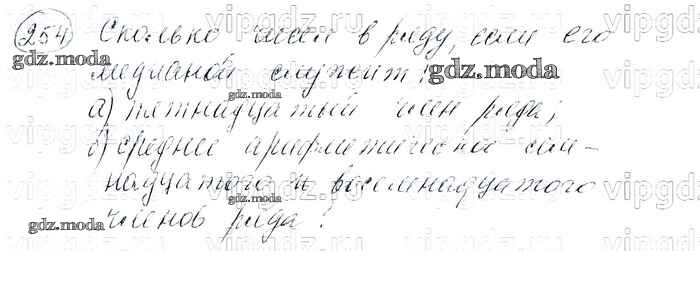 254 Сколько чисел в ряду, если его
медианой служит:
а) пятнадцатый член ряда;
б) среднее арифметическое сем-
надцатого и восемнадцатого
членов ряда?
gdz.moda
gdz.moda
gdz.moda
gdz.moda
gdz.moda